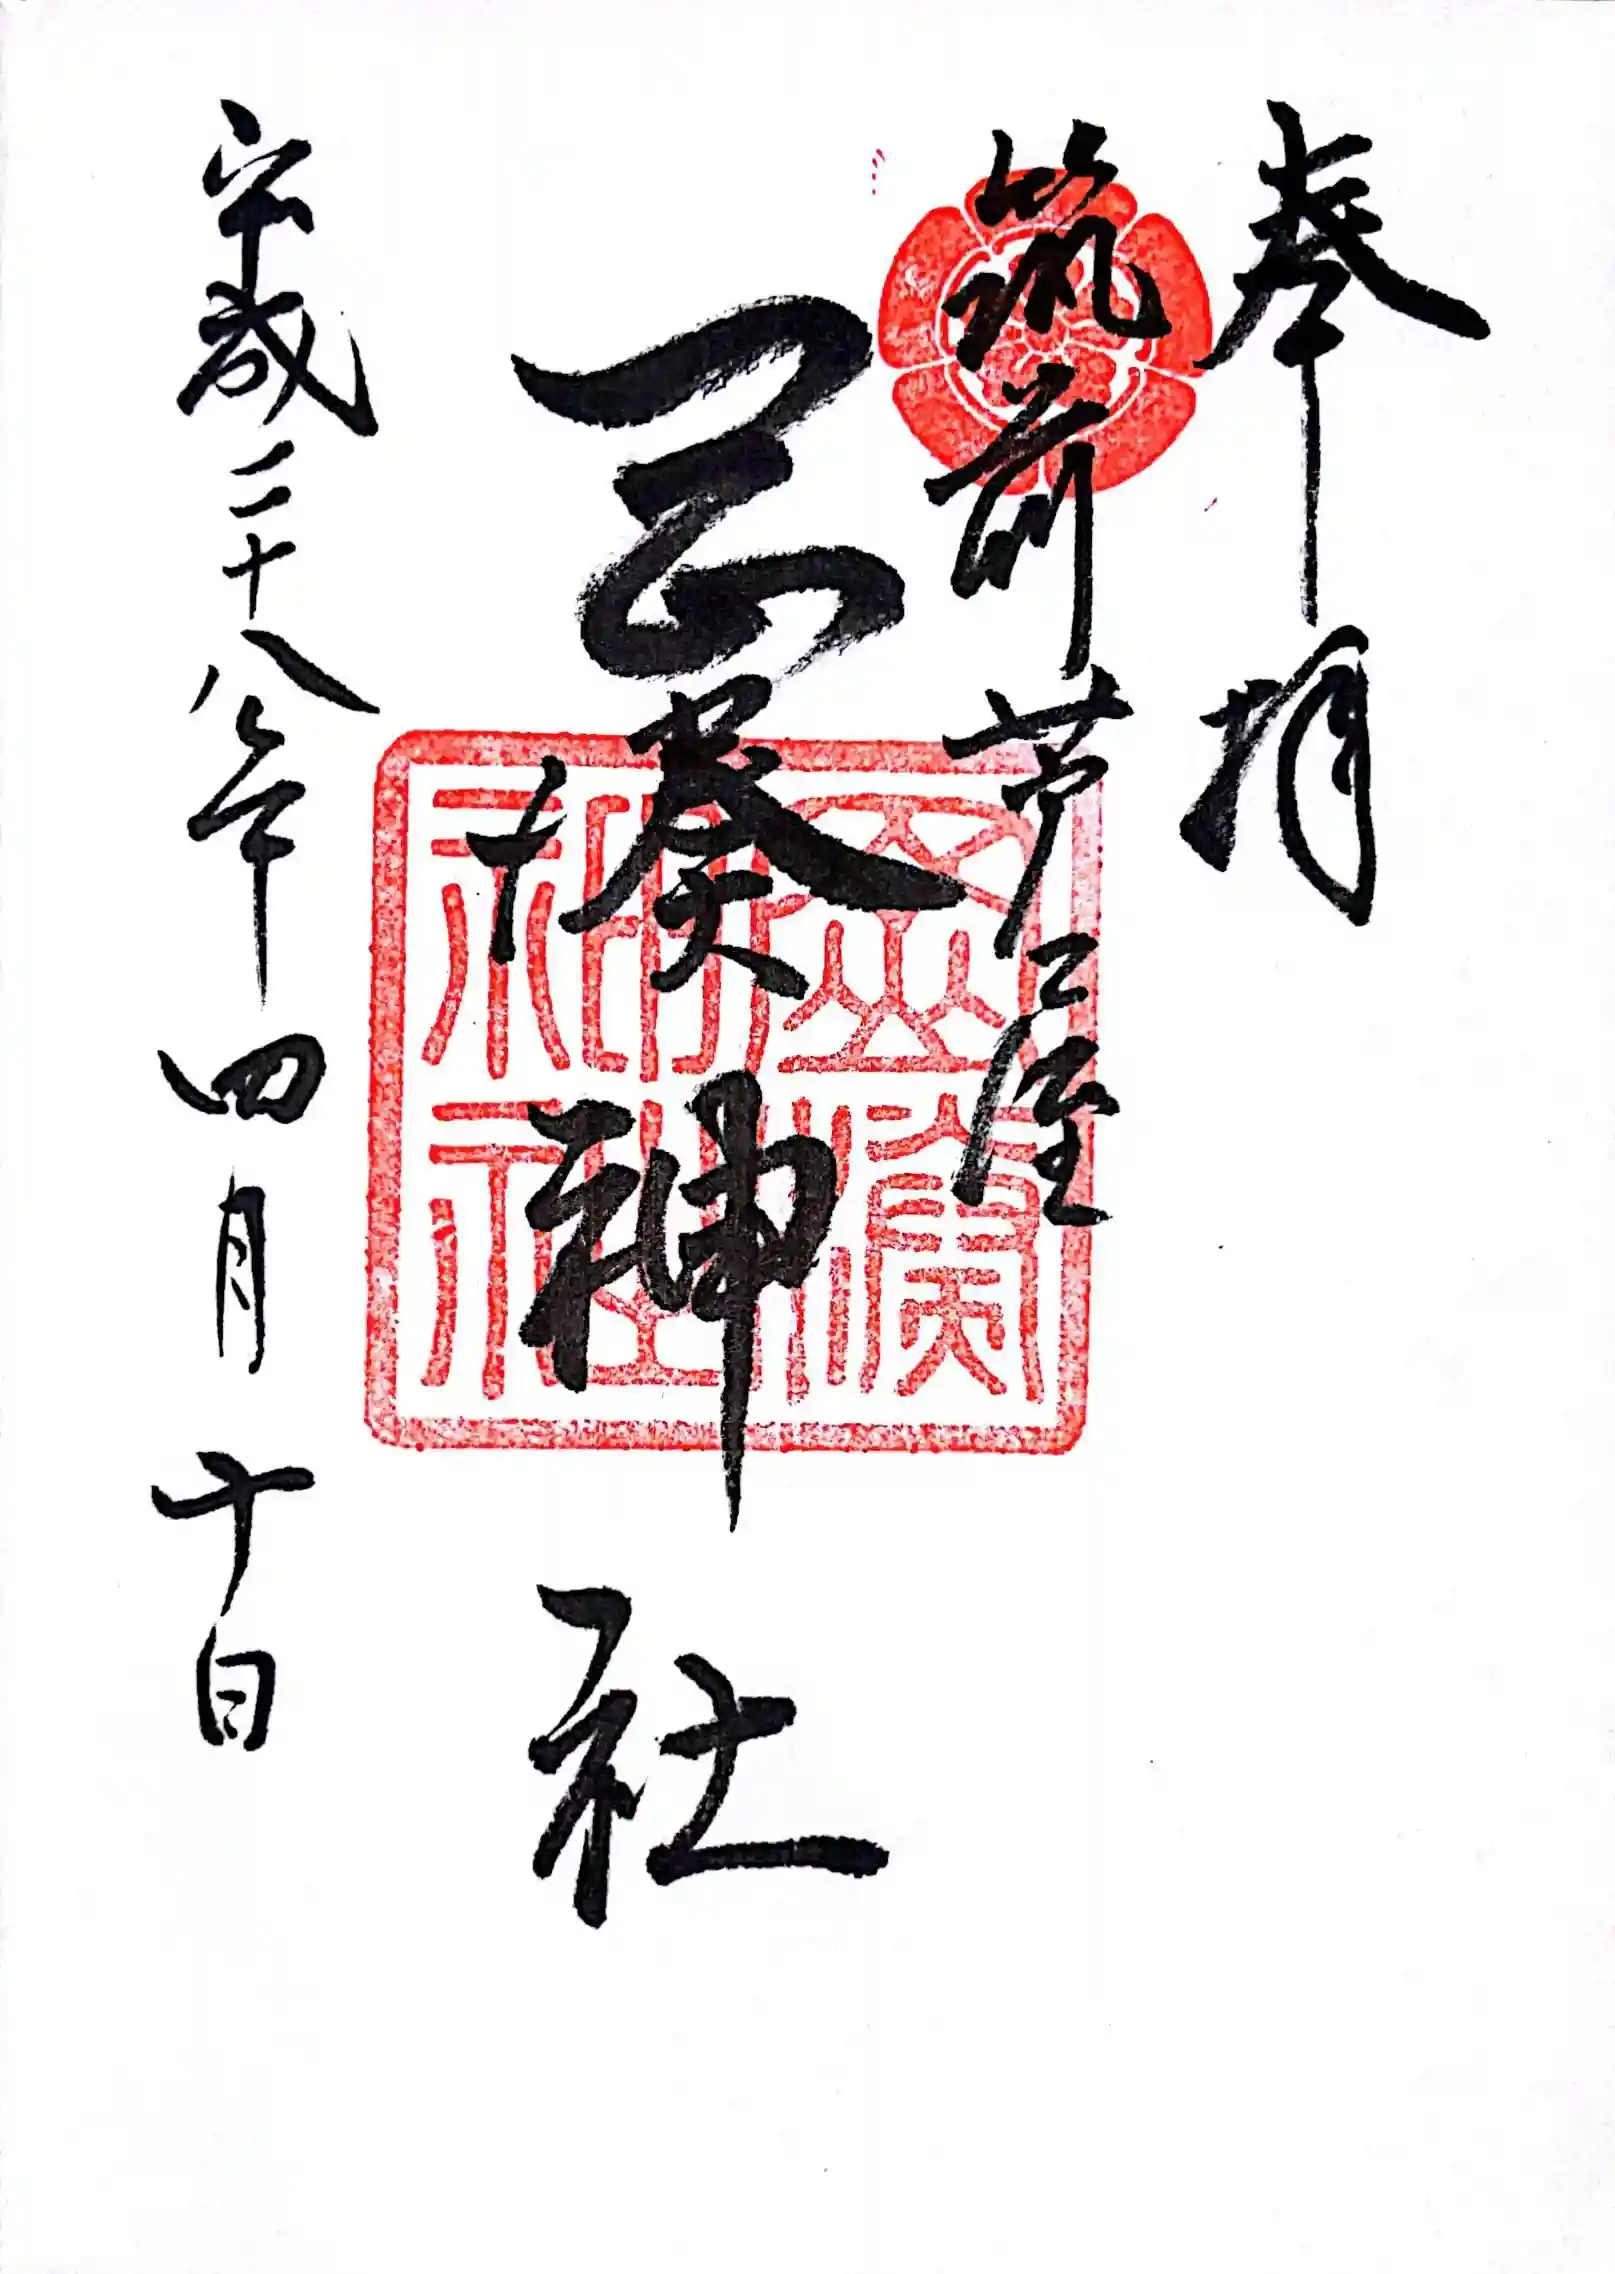 奉拝
筑前芦屋
岡湊神社
平成二十八年四月十日
岡湊
神社